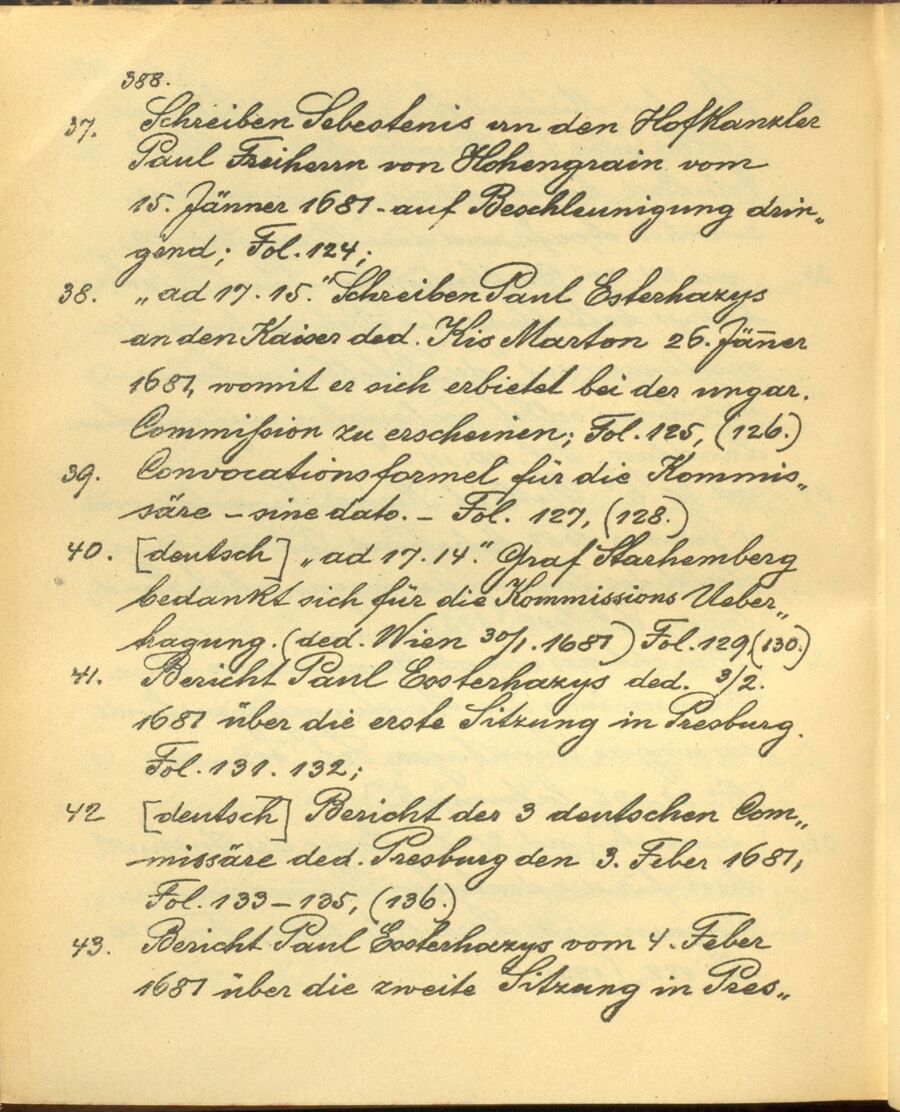 388.
37. Schreiben Sebestenis an den Hofkanzler
Paul Freiherrn von Hohengrain vom
15. Jänner 1681 - auf Beschleunigung drin„
gend; Fol. 124;
38. „ad 17. 15.“ Schreiben Paul Esterhazys
an den Kaiser ded. Kis Marton 26. Jän̄er
1681, womit er sich erbietet bei der ungar.
Commission zu erscheinen; Fol. 125, (126.)
39. Convocationsformel für die Kommis„
säre – sine dato. – Fol. 127, (128.)
40. [deutsch] „ad 17. 14.“ Graf Starhemberg
bedankt sich für die Kommissions Ueber„
tragung. (ded. Wien 30/1. 1681) Fol. 129 (130.)
41. Bericht Paul Eosterhazys ded. 3/2.
1681 über die erste Sitzung in Presburg.
Fol. 131. 132;
42 [deutsch] Bericht der 3 deutschen Com„
missäre ded. Presburg den 3. Feber 1681,
Fol. 133 – 135, (136.)
43. Bericht Paul Eosterhazys vom 4. Feber
1681 über die zweite Sitzung in Pres„